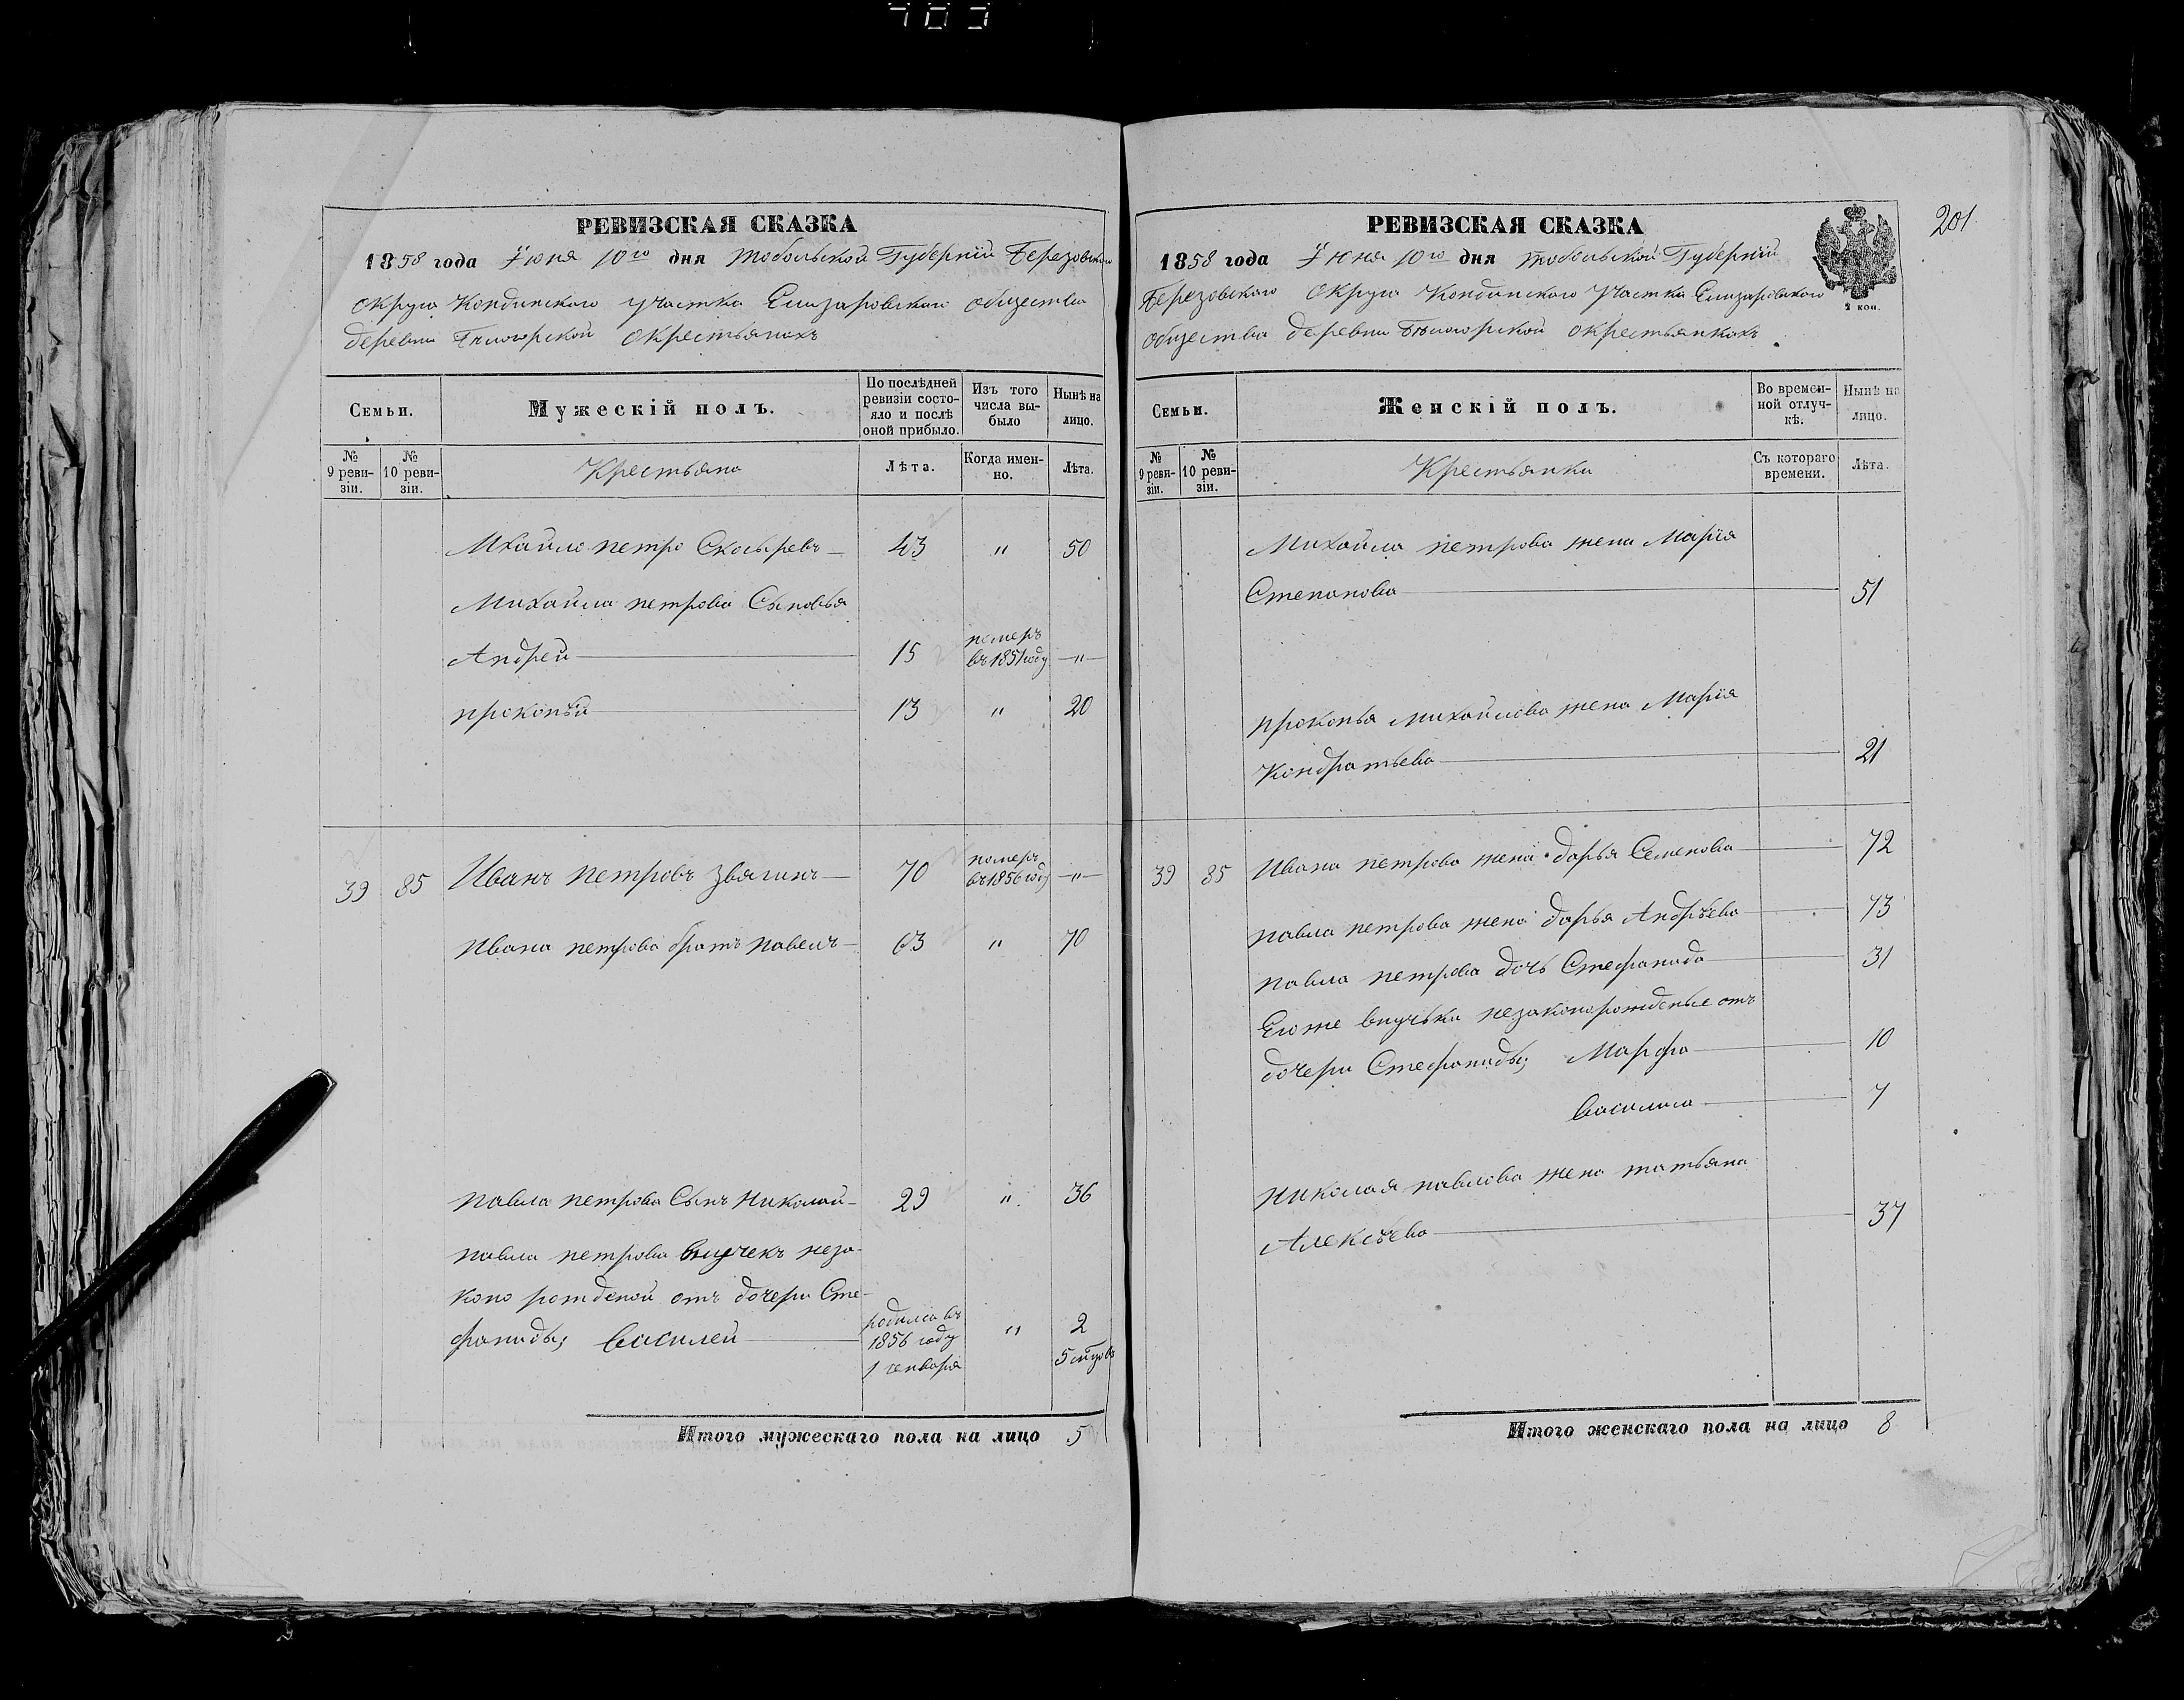 201.
РЕВИЗСКАЯ СКАЗКА
1858 года Іюня 10го дня Тобольской Губерніи Березовскаго
округа Кондинскаго участка Елизаровскаго общества
деревни Бѣлогорской окрестьянахъ
Семьи.
Мужескій полъ.
По послѣдней ревизіи состо-
яло и послѣ
оной прибыло.
Изъ того
числа вы-
было
Нынѣ на
лицо.
№
9 реви-
зіи.
№
10 реви-
зіи.
Крестьяна
Лѣта.
Когда имен-
но.
Лѣта.
Михайло петро Скосыревъ 43 " 50
Михайла петрова Сыновья
Андрей 15 померъ въ 1851 году "
прокопьй 13 " 20
39 85 Иванъ петровъ Звягинъ 70 померъ въ 1856 году "
Ивана петрова братъ павелъ 63 " 70
павла петрова Сынъ Николай 29 " 36
павла петрова внучекъ неза-
коно рожденой отъ дочери Сте-
фаниды; Василей родился въ 1856 году 1 генваря " 2 5 мѣсяцовъ
Итого мужескаго пола на лицо 5
РЕВИЗСКАЯ СКАЗКА
2 коп.
1858 года Іюня 10го дня Тобольской Губерніи
Березовскаго Округа Кондинскаго Участка Елизаровскаго
общества деревни Бѣлогорской окрестьянкахъ
Семьи.
Женскій полъ.
Во времен-
ной отлуч-
кѣ.
Нынѣ на
лицо.
№
9 реви-
зіи.
№
10 реви-
зіи.
Крестьянки
Съ котораго
времени.
Лѣта.
Михайла петрова жена Марія
Степанова 51
прокопья Михайлова жена Марія
Кондратьева 21
39 85 Ивана петрова жена дарья Семенова 72
павла петрова жена дарья Андрѣева 73
павла петрова дочь Стефанида 31
Егоже внучька незаконорожденые отъ
дочери Стефаниды; Марфа 10
Василиса 7
Николая павлова жена татьяна
Алексѣева 37
Итого женскаго пола на лицо 8